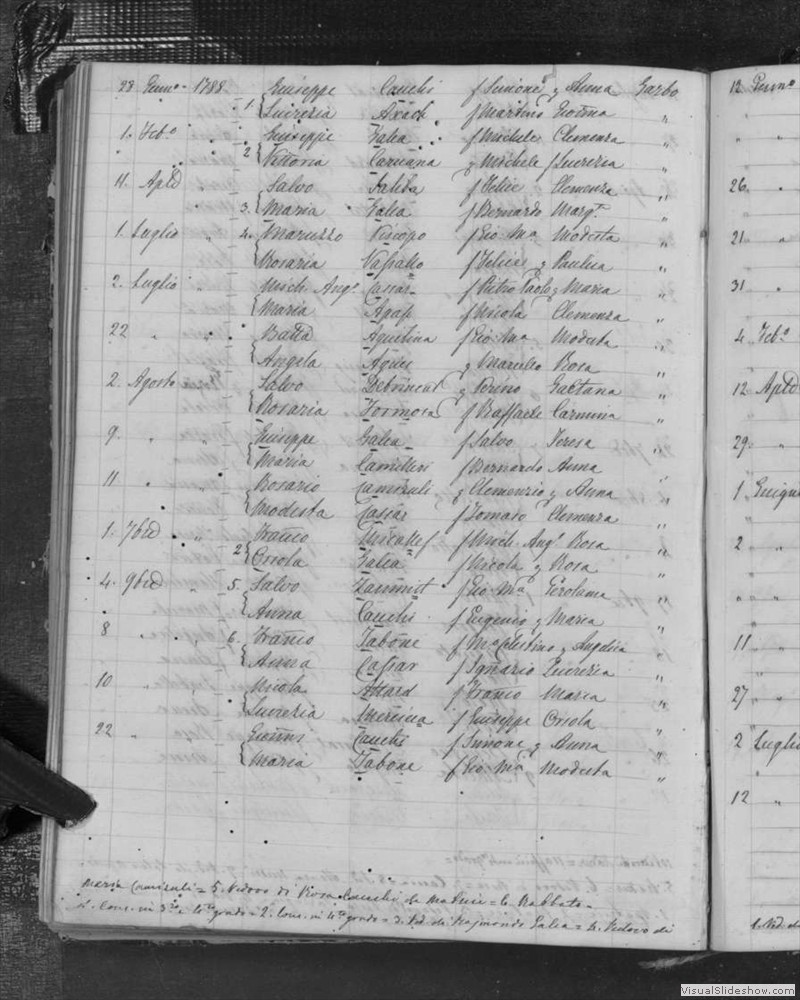 28 Genn.o 1788 Giuseppe Cauchi f Simone q Anna Garbo
1. Lucrezia Axach f Martino Gio:nna "
1. Feb.o " Giuseppe Galea f Michele Clemenza "
2 Vittoria Caruana q Michele f Lucrezia "
11. Aple Salvo Saliba f Felice Clemenza "
3. Maria Galea f Bernardo Marg.ta "
1. Luglio " 4. Maruzzo Piscopo f Gio Ma Modesta "
Rosaria Vassallo f Felice q Paulica "
2. Luglio " Mich. Ang.o Cassar f Pietro Paolo q Maria "
Maria Agap f Nicola Clemenza "
22 " " Batta Agostina f Gio Ma Modesta "
Angela Agius q Marcello Rosa "
2. Agosto " Salvo Debrincat q Torino Gaetana "
Rosaria Formosa f Raffaele Carmina "
9. " " Giuseppe Galea f Salvo Teresa "
Maria Camilleri f Bernardo Anna "
11 " " Rosario Camizuli q Clemenzio q Anna "
Modesta Cassar f Tomaso Clemenza "
1. 7bre " Franco Micallef f Mich. Ang.o Rosa "
2 Orsola Galea f Nicola q Rosa "
4. 9bre 5. Salvo Zammit f Gio Ma Gerolama "
Anna Cauchi f Eugenio q Maria "
8 " " 6. Franco Tabone f Ma Celestino q Angelica "
Anna Cassar f Ignazio Lucrezia "
10 " " Nicola Attard f Franco Maria "
Lucrezia Mercieca f Giuseppe Orsola "
22 " " Gio:nni Cauchi f Simone q Anna "
Maria Tabone f Gio Ma Modesta "
Maria Camizuli = 5. Vedovo di Rosa Cauchi de Matrice = 6. Rabbato =
1. Cons. in 3zo e 4to grado = 2. Cons. in 4to grado = 3. Ved. di Rajmondo Galea = 4. Vedovo di
12 Genn.o
26.
21
31
4 Feb.o
12 Aple
29.
1 Giugn
2
11
27
2 Luglio
12
1. Ved. d
VisualSlideshow.com